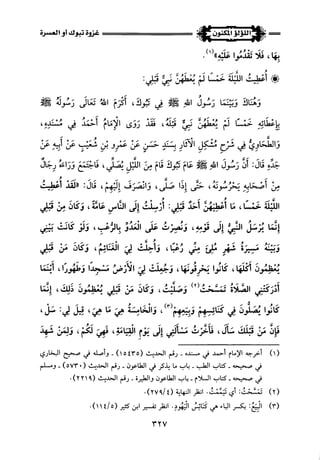 اللؤلؤ المكنون
غزوة تبوك أو العسرة
بِهَا، فَلَا تَقْدُمُوا عَلَيْهِ»(١).
أُعْطِيتُ اللَّيْلَةَ خَمْسًا لَمْ يُعْطَهُنَّ نَبِيٌّ قَبْلِي:
وَهُنَاكَ وَبَيْنَمَا رَسُولُ اللهِ ﷺ فِي تَبُوكَ، أَكْرَمَ اللهُ تَعَالَى رَسُولَهُ ﷺ
بِإِعْطَائِهِ خَمْسًا لَمْ يُعْطَهُنَّ نَبِيٌّ قَبْلَهُ، فَقَدْ رَوَى الْإِمَامُ أَحْمَدُ فِي مُسْنَدِهِ،
وَالطَّحَاوِيُّ فِي شَرْحِ مُشْكِلِ الْآثَارِ بِسَنَدٍ حَسَنٍ عَنْ عَمْرِو بْنِ شُعَيْبٍ عَنْ أَبِيهِ عَنْ
جَدِّهِ قَالَ: أَنَّ رَسُولَ اللهِ ﷺ عَامَ تَبُوكَ قَامَ مِنَ اللَّيْلِ يُصَلِّي، فَاجْتَمَعَ وَرَاءَهُ رِجَالٌ
مِنْ أَصْحَابِهِ يَحْرُسُونَهُ، حَتَّى إِذَا صَلَّى، وَانْصَرَفَ إِلَيْهِمْ، قَالَ: «لَقَدْ أُعْطِيتُ
اللَّيْلَةَ خَمْسًا، مَا أُعْطِيَهُنَّ أَحَدٌ قَبْلِي: أُرْسِلْتُ إِلَى النَّاسِ عَامَّةً، وَكَانَ مِنْ قَبْلِي
إِنَّمَا يُرْسَلُ النَّبِيُّ إِلَى قَوْمِهِ، وَنُصِرْتُ عَلَى الْعَدُوِّ بِالرُّعْبِ، وَلَوْ كَانَ بَيْنِي
وَبَيْنَهُ مَسِيرَةُ شَهْرٍ مُلِئَ مِنِّي رُعْبًا، وَأُحِلَّتْ لِيَ الْغَنَائِمُ، وَكَانَ مَنْ قَبْلِي
يُعَظِّمُونَ أَكْلَهَا، كَانُوا يَحْرِقُونَهَا، وَجُعِلَتْ لِيَ الْأَرْضُ مَسْجِدًا وَطَهُورًا، أَيْنَمَا
أَدْرَكَتْنِي الصَّلَاةُ تَمَسَّحْتُ(٢) وَصَلَّيْتُ، وَكَانَ مَنْ قَبْلِي يُعَظِّمُونَ ذَلِكَ، إِنَّمَا
كَانُوا يُصَلُّونَ فِي كَنَائِسِهِمْ وَبِيَعِهِمْ(٣)، وَالْخَامِسَةُ هِيَ مَا هِيَ، قِيلَ لِي: سَلْ،
فَإِنَّ كُلَّ نَبِيٍّ قَدْ سَأَلَ، فَأَخَّرْتُ مَسْأَلَتِي إِلَى يَوْمِ الْقِيَامَةِ، فَهِيَ لَكُمْ، وَلِمَنْ شَهِدَ
(١) أخرجه الإمام أحمد في مسنده - رقم الحديث (١٥٤٣٥) - وأصله في صحيح البخاري
في صحيحه - كتاب الطب - باب ما يذكر في الطاعون - رقم الحديث (٥٧٣٠) - ومسلم
في صحيحه - كتاب السلام - باب الطاعون والطيرة - رقم الحديث (٢٢١٩).
(٢) تَمَسَّحْتُ: أي تَيَمَّمْتُ. انظر النهاية (٢٧٩/٤).
(٣) الْبِيَعُ: بكسر الباء هي كَنَائِسُ الْيَهُودِ. انظر تفسير ابن كثير (١١٤/٥).
٣٢٧